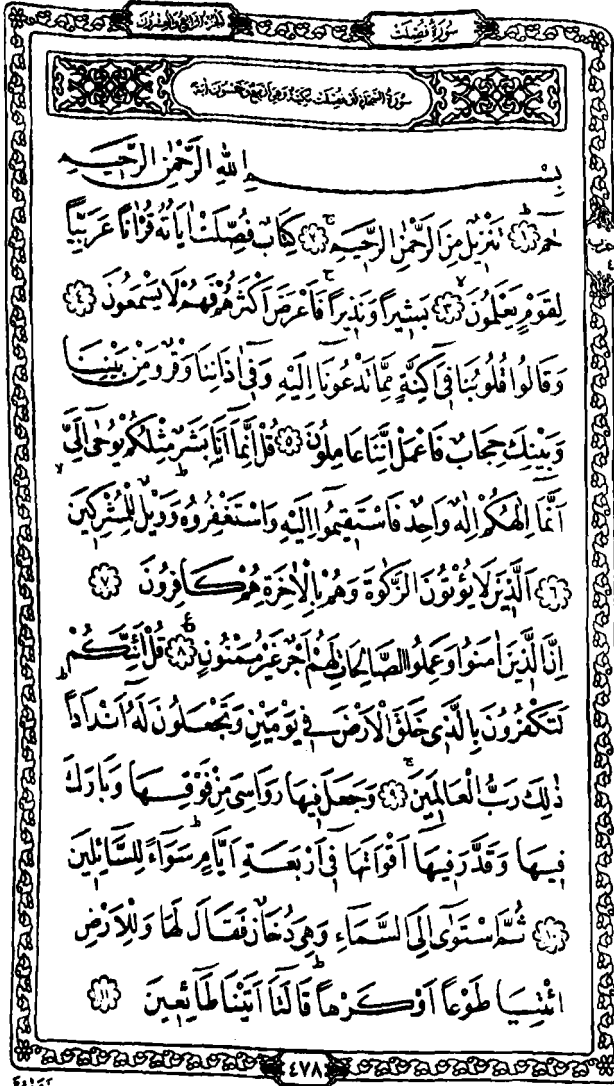 الجزء الرابع والعشرون
سورة فصلت
بِسْمِ اللّٰهِ الرَّحْمٰنِ الرَّحِيمِ
حٰمٓ ﴿١﴾ تَنْزِيلٌ مِنَ الرَّحْمٰنِ الرَّحِيمِ ﴿٢﴾ كِتَابٌ فُصِّلَتْ اٰيَاتُهُ قُرْاٰنًا عَرَبِيًّا
لِقَوْمٍ يَعْلَمُونَ ﴿٣﴾ بَشِيرًا وَنَذِيرًا فَاَعْرَضَ اَكْثَرُهُمْ فَهُمْ لَا يَسْمَعُونَ ﴿٤﴾
وَقَالُوا قُلُوبُنَا فِي اَكِنَّةٍ مِمَّا تَدْعُونَا اِلَيْهِ وَفِي اٰذَانِنَا وَقْرٌ وَمِنْ بَيْنِنَا
وَبَيْنِكَ حِجَابٌ فَاعْمَلْ اِنَّنَا عَامِلُونَ ﴿٥﴾ قُلْ اِنَّمَا اَنَا بَشَرٌ مِثْلُكُمْ يُوحٰى اِلَيَّ
اَنَّمَا اِلٰهُكُمْ اِلٰهٌ وَاحِدٌ فَاسْتَقِيمُوا اِلَيْهِ وَاسْتَغْفِرُوهُ وَوَيْلٌ لِلْمُشْرِكِينَ
﴿٦﴾ اَلَّذِينَ لَا يُؤْتُونَ الزَّكٰوةَ وَهُمْ بِالْاٰخِرَةِ هُمْ كَافِرُونَ ﴿٧﴾
اِنَّ الَّذِينَ اٰمَنُوا وَعَمِلُوا الصَّالِحَاتِ لَهُمْ اَجْرٌ غَيْرُ مَمْنُونٍ ﴿٨﴾ قُلْ اَئِنَّكُمْ
لَتَكْفُرُونَ بِالَّذِي خَلَقَ الْاَرْضَ فِي يَوْمَيْنِ وَتَجْعَلُونَ لَهُ اَنْدَادًا
ذٰلِكَ رَبُّ الْعَالَمِينَ ﴿٩﴾ وَجَعَلَ فِيهَا رَوَاسِيَ مِنْ فَوْقِهَا وَبَارَكَ
فِيهَا وَقَدَّرَ فِيهَا اَقْوَاتَهَا فِي اَرْبَعَةِ اَيَّامٍ سَوَاءً لِلسَّائِلِينَ
﴿١٠﴾ ثُمَّ اسْتَوٰى اِلَى السَّمَاءِ وَهِيَ دُخَانٌ فَقَالَ لَهَا وَلِلْاَرْضِ
ائْتِيَا طَوْعًا اَوْ كَرْهًا قَالَتَا اَتَيْنَا طَائِعِينَ ﴿١١﴾
٤٧٨